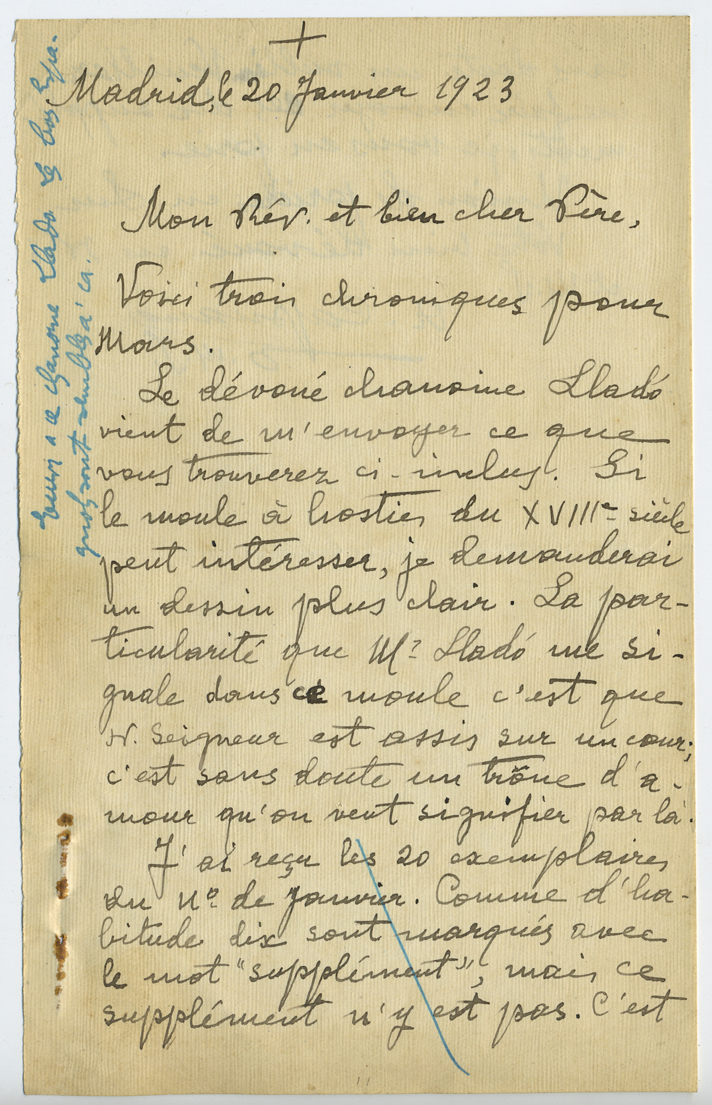 +
Madrid, le 20 Janvier 1923
Mon Rév. et bien cher Père,
Voici trois chroniques pour
Mars.
Le dévoué chanoine Lladó
vient de m'envoyer ce que
vous trouverez ci-inclus. Si
le moule à hosties du XVIIIe siècle
peut intéresser, je demanderai
un dessin plus clair. La par-
ticularité que Mr Lladó me si-
gnale dans ce moule c'est que
N. Seigneur est assis sur un cœur;
c'est sans doute un trône d'a-
mour qu'on veut signifier par là.
J'ai reçu les 20 exemplaires
du No de Janvier. Comme d'ha-
bitude dix sont marqués avec
le mot "supplément", mais ce
supplément n'y est pas. C'est
a ce chanoine Llado